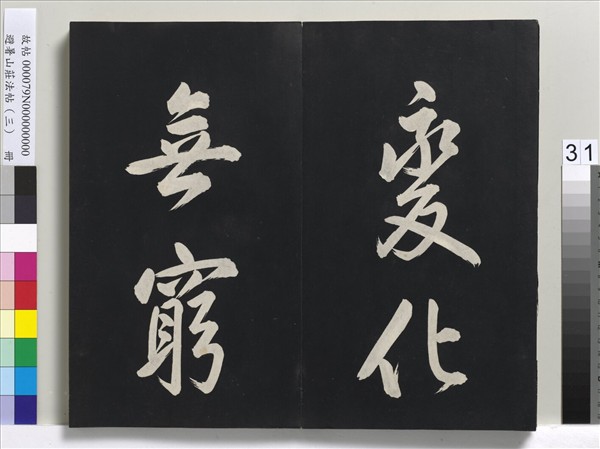 變化
無窮
故帖 000079N000000000
避暑山莊法帖（三） 冊
31